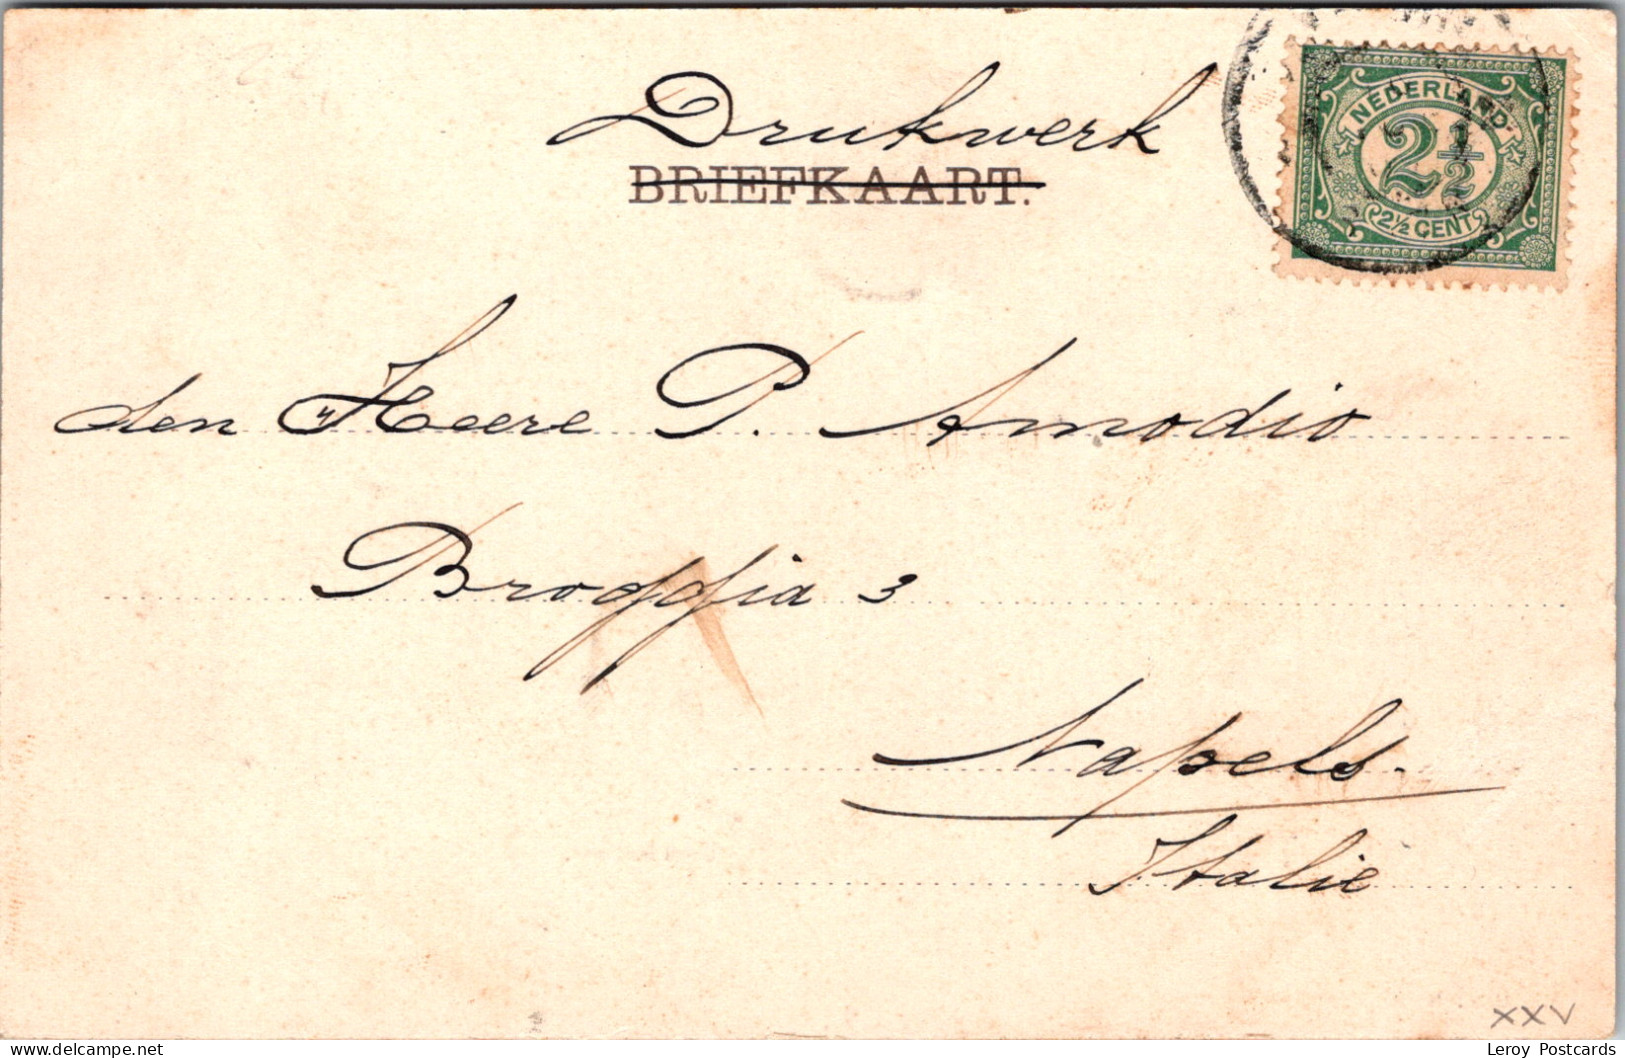 Drukwerk
BRIEFKAART.
NEDERLAND
2½
2½ CENT
den Heere P. Amodio
Broggia 3
Napels.
Italië
XXV
delcampe.net
Leroy Postcards